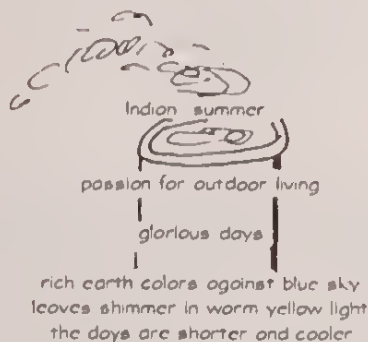 Indian summer
passion for outdoor living
glorious days
rich earth colors against blue sky
leaves shimmer in warm yellow light
the days are shorter and cooler